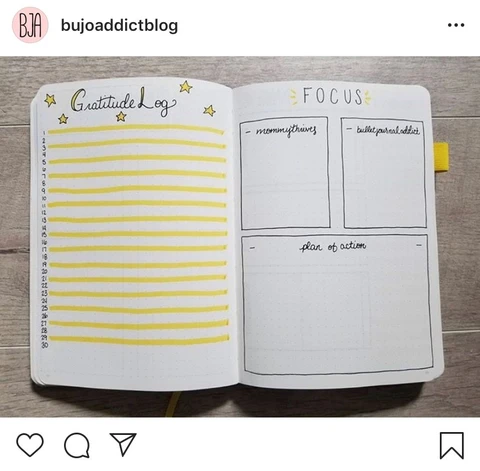 BJA
bujoaddictblog
Gratitude Log
1
2
3
4
5
6
7
8
9
10
11
12
13
14
15
16
17
18
19
20
21
22
23
24
25
26
27
28
29
30
FOCUS
- mommythrives -
- bulletjournaladdict -
- plan of action -